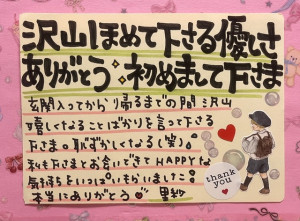 沢山ほめて下さる優しさ
ありがとう・初めまして下さま
玄関入ってから帰るまでの間 沢山
嬉しくなることばかりを言って下さる
下さま。恥ずかしくなるし(笑)。
私も下さまとお会いできてHAPPYな
気持ちをいっぱいもらいました!!
本当にありがとう
里紗
thank you